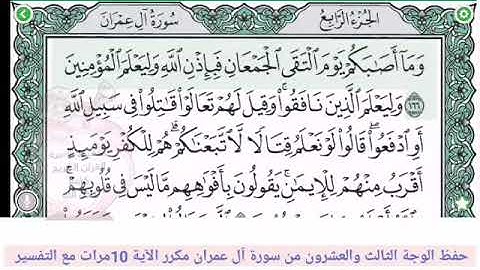 الجزء الرابع سورة آل عمران
وَمَآ أَصَٰبَكُمْ يَوْمَ ٱلْتَقَى ٱلْجَمْعَانِ فَبِإِذْنِ ٱللَّهِ وَلِيَعْلَمَ ٱلْمُؤْمِنِينَ
١٦٦ وَلِيَعْلَمَ ٱلَّذِينَ نَافَقُوا۟ ۚ وَقِيلَ لَهُمْ تَعَالَوْا۟ قَٰتِلُوا۟ فِى سَبِيلِ ٱللَّهِ
أَوِ ٱدْفَعُوا۟ ۖ قَالُوا۟ لَوْ نَعْلَمُ قِتَالًا لَّٱتَّبَعْنَٰكُمْ ۗ هُمْ لِلْكُفْرِ يَوْمَئِذٍ
أَقْرَبُ مِنْهُمْ لِلْإِيمَٰنِ ۚ يَقُولُونَ بِأَفْوَٰهِهِم مَّا لَيْسَ فِى قُلُوبِهِمْ
حفظ الوجة الثالث والعشرون من سورة آل عمران مكرر الآية 10مرات مع التفسير